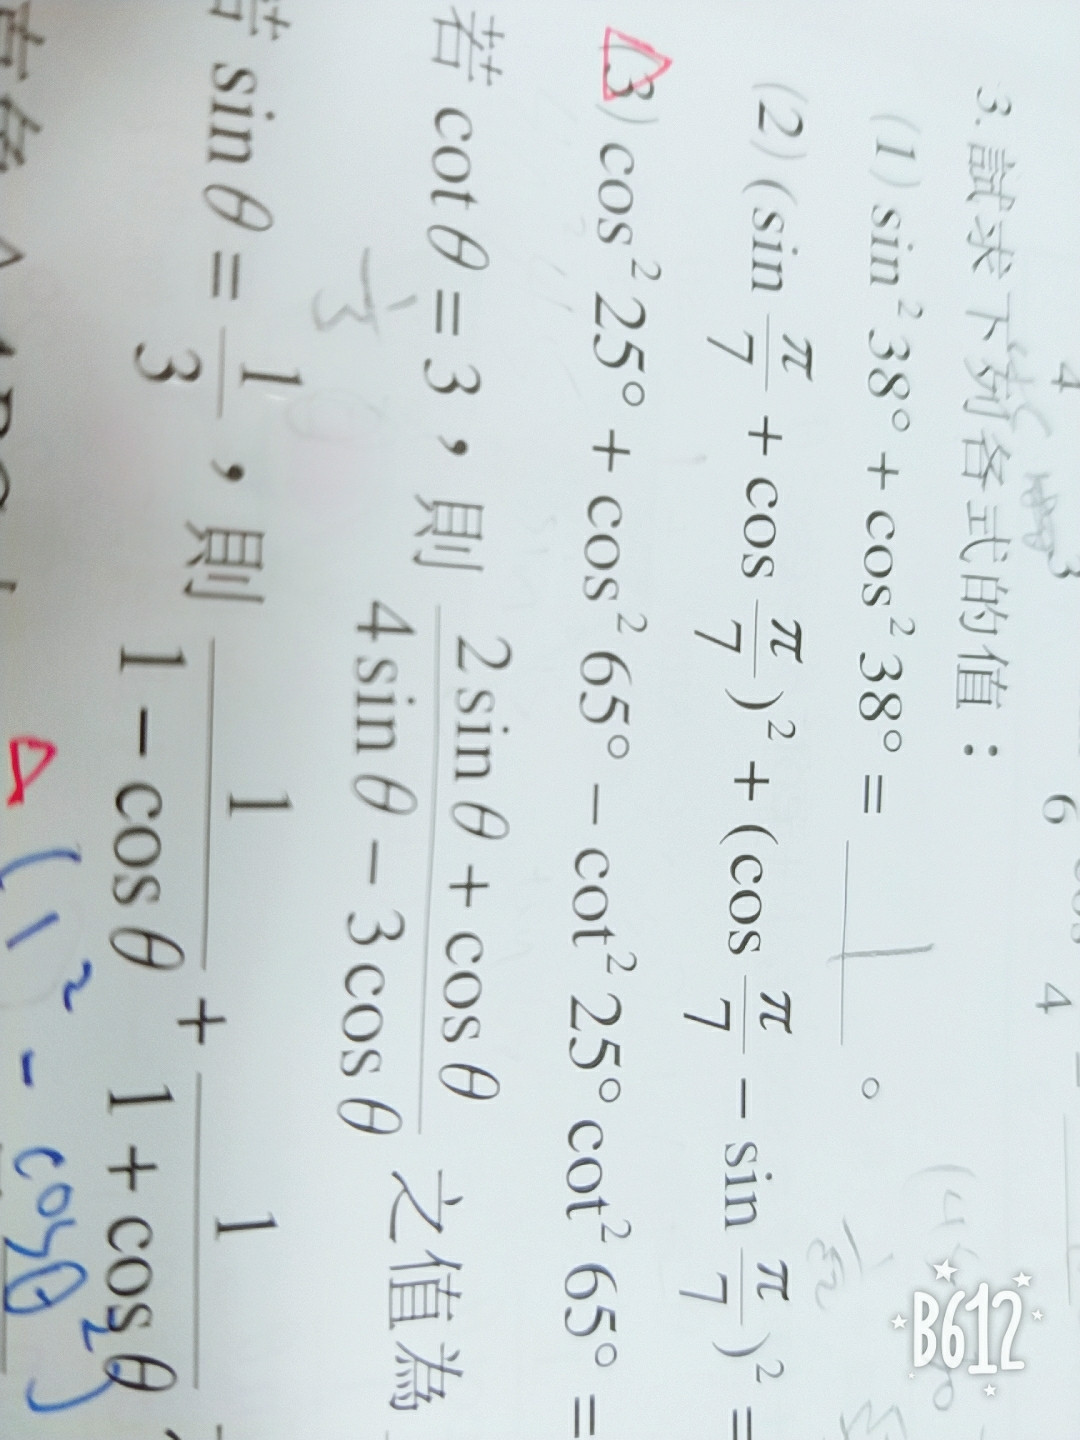 4 3 6 4
3.試求下列各式的值：
(1) sin²38° + cos²38° = 1 。
(2) (sin π/7 + cos π/7)² + (cos π/7 − sin π/7)² =
(3) cos²25° + cos²65° − cot²25°cot²65° =
若 cot θ = 3，則 (2 sin θ + cos θ)/(4 sin θ − 3 cos θ) 之值為
1/3
若 sin θ = 1/3，則 1/(1 − cos θ) + 1/(1 + cos θ)
(1² − cosθ²)
B612